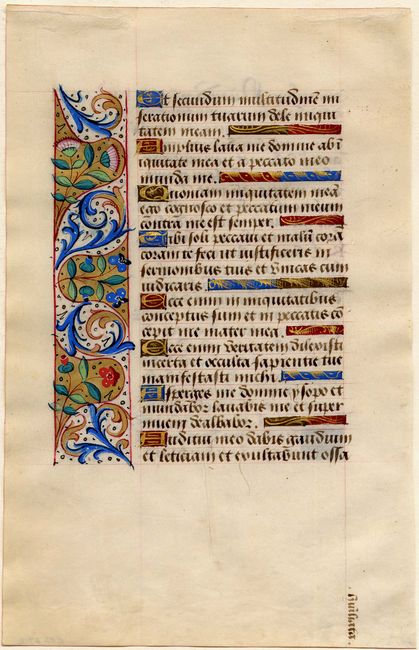 Et secundum multitudinē mi
serationum tuarum dele iniqui
tatem meam.
Amplius laua me domine ab i
iquitate mea et a peccato meo
munda me.
Quoniam iniquitatem meā
ego cognosco et peccatum meum
contra me est semper.
Tibi soli peccaui et malū corā
coram te feci ut iustificeris in
sermonibus tuis et vincas cum
iudicaris.
Ecce enim in iniquitatibus
conceptus sum et in peccatis co
cepit me mater mea.
Ecce enim veritatem dilexisti
incerta et occulta sapientie tue
manifestasti michi.
Asperges me domine ysopo et
mundabor lauabis me et super
niuem dealbabor.
Auditui meo dabis gaudium
et leticiam et exultabunt ossa